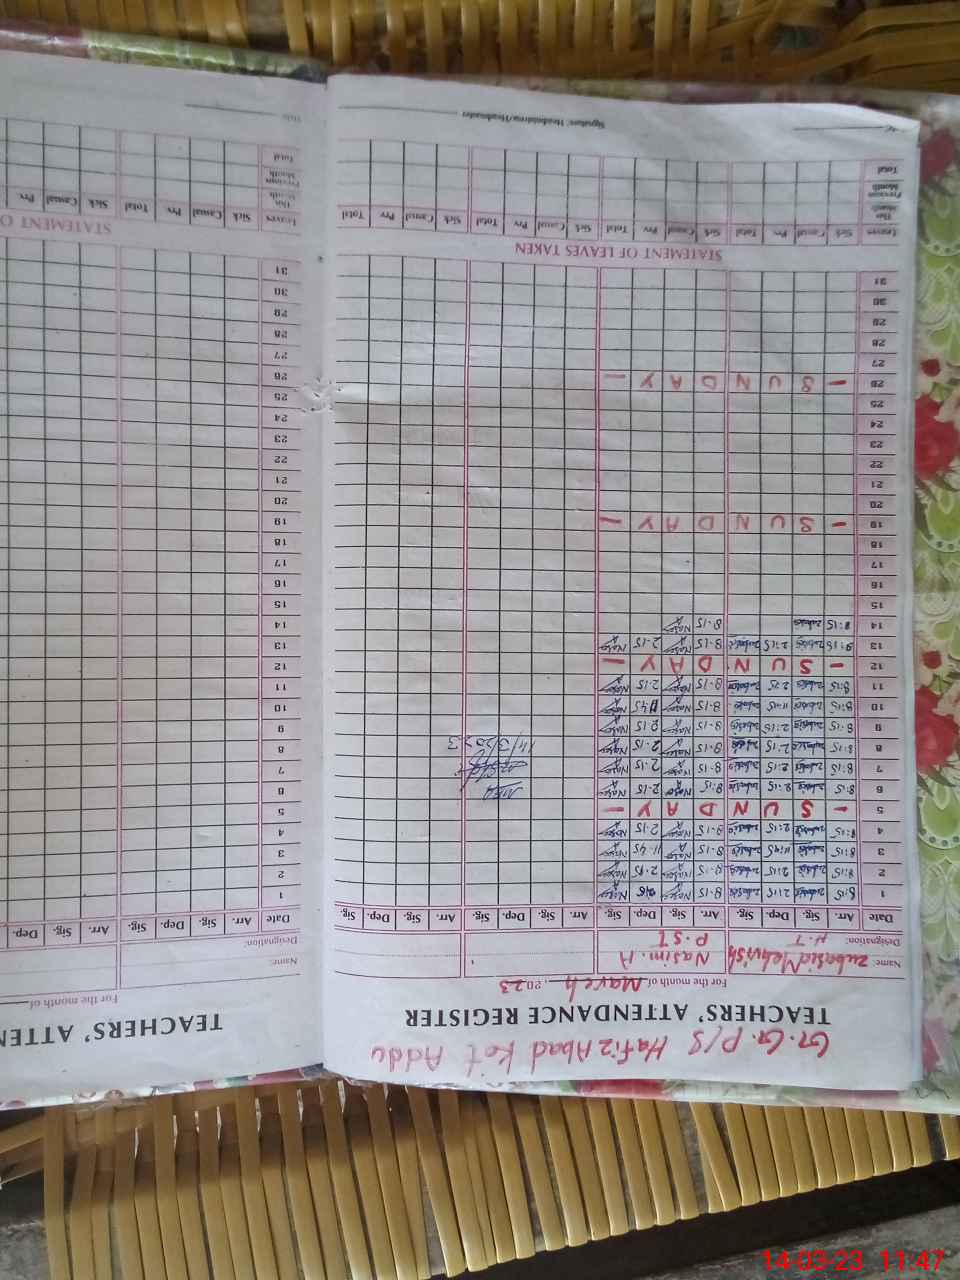 G.G. P/S Hafiz Abad Kot Addu
TEACHERS' ATTENDANCE REGISTER
For the month of March, 2023
Name: Zubasid Mehvish Nasim. A
Designation: H.T P.ST
Date Arr. Sig. Dep. Sig. Arr. Sig. Dep. Sig. Arr. Sig. Dep. Sig. Arr. Sig. Dep. Sig.
1 8:15 2:15 8-15 2:15
2 8:15 2:15 8-15 2-15
3 8:15 11:45 8-15 11-45
4 8:15 2:15 8-15 2-15
5 - S U N D A Y -
6 8:15 2:15 8:15 2-15
7 8:15 2:15 8-15 2-15
8 8:15 2:15 8-15 2-15
9 8:15 2:15 8-15 2-15
10 8:15 11:45 8-15 11-45
11 8:15 2:15 8-15 2-15
12 - S U N D A Y -
13 8:15 2:15 8-15 2-15
14 8:15 8-15
15
16
17
18
19 - S U N D A Y -
20
21
22
23
24
25
26 - S U N D A Y -
27
28
29
30
31
MEA
14/3/2023
STATEMENT OF LEAVES TAKEN
Leaves Sick Casual Prv Total Sick Casual Prv Total Sick Casual Prv Total Sick Casual Prv Total
This Month
Previous Month
Total
Signature: Headmistress/Headmaster
TEACHERS' ATTEN
For the month of
Name:
Designation:
Date Arr. Sig. Dep. Sig. Arr. Sig. Dep.
1
2
3
4
5
6
7
8
9
10
11
12
13
14
15
16
17
18
19
20
21
22
23
24
25
26
27
28
29
30
31
STATEMENT O
Leaves Sick Casual Prv Total Sick Casual Prv
This Month
Previous Month
Total
14-03-23 11:47